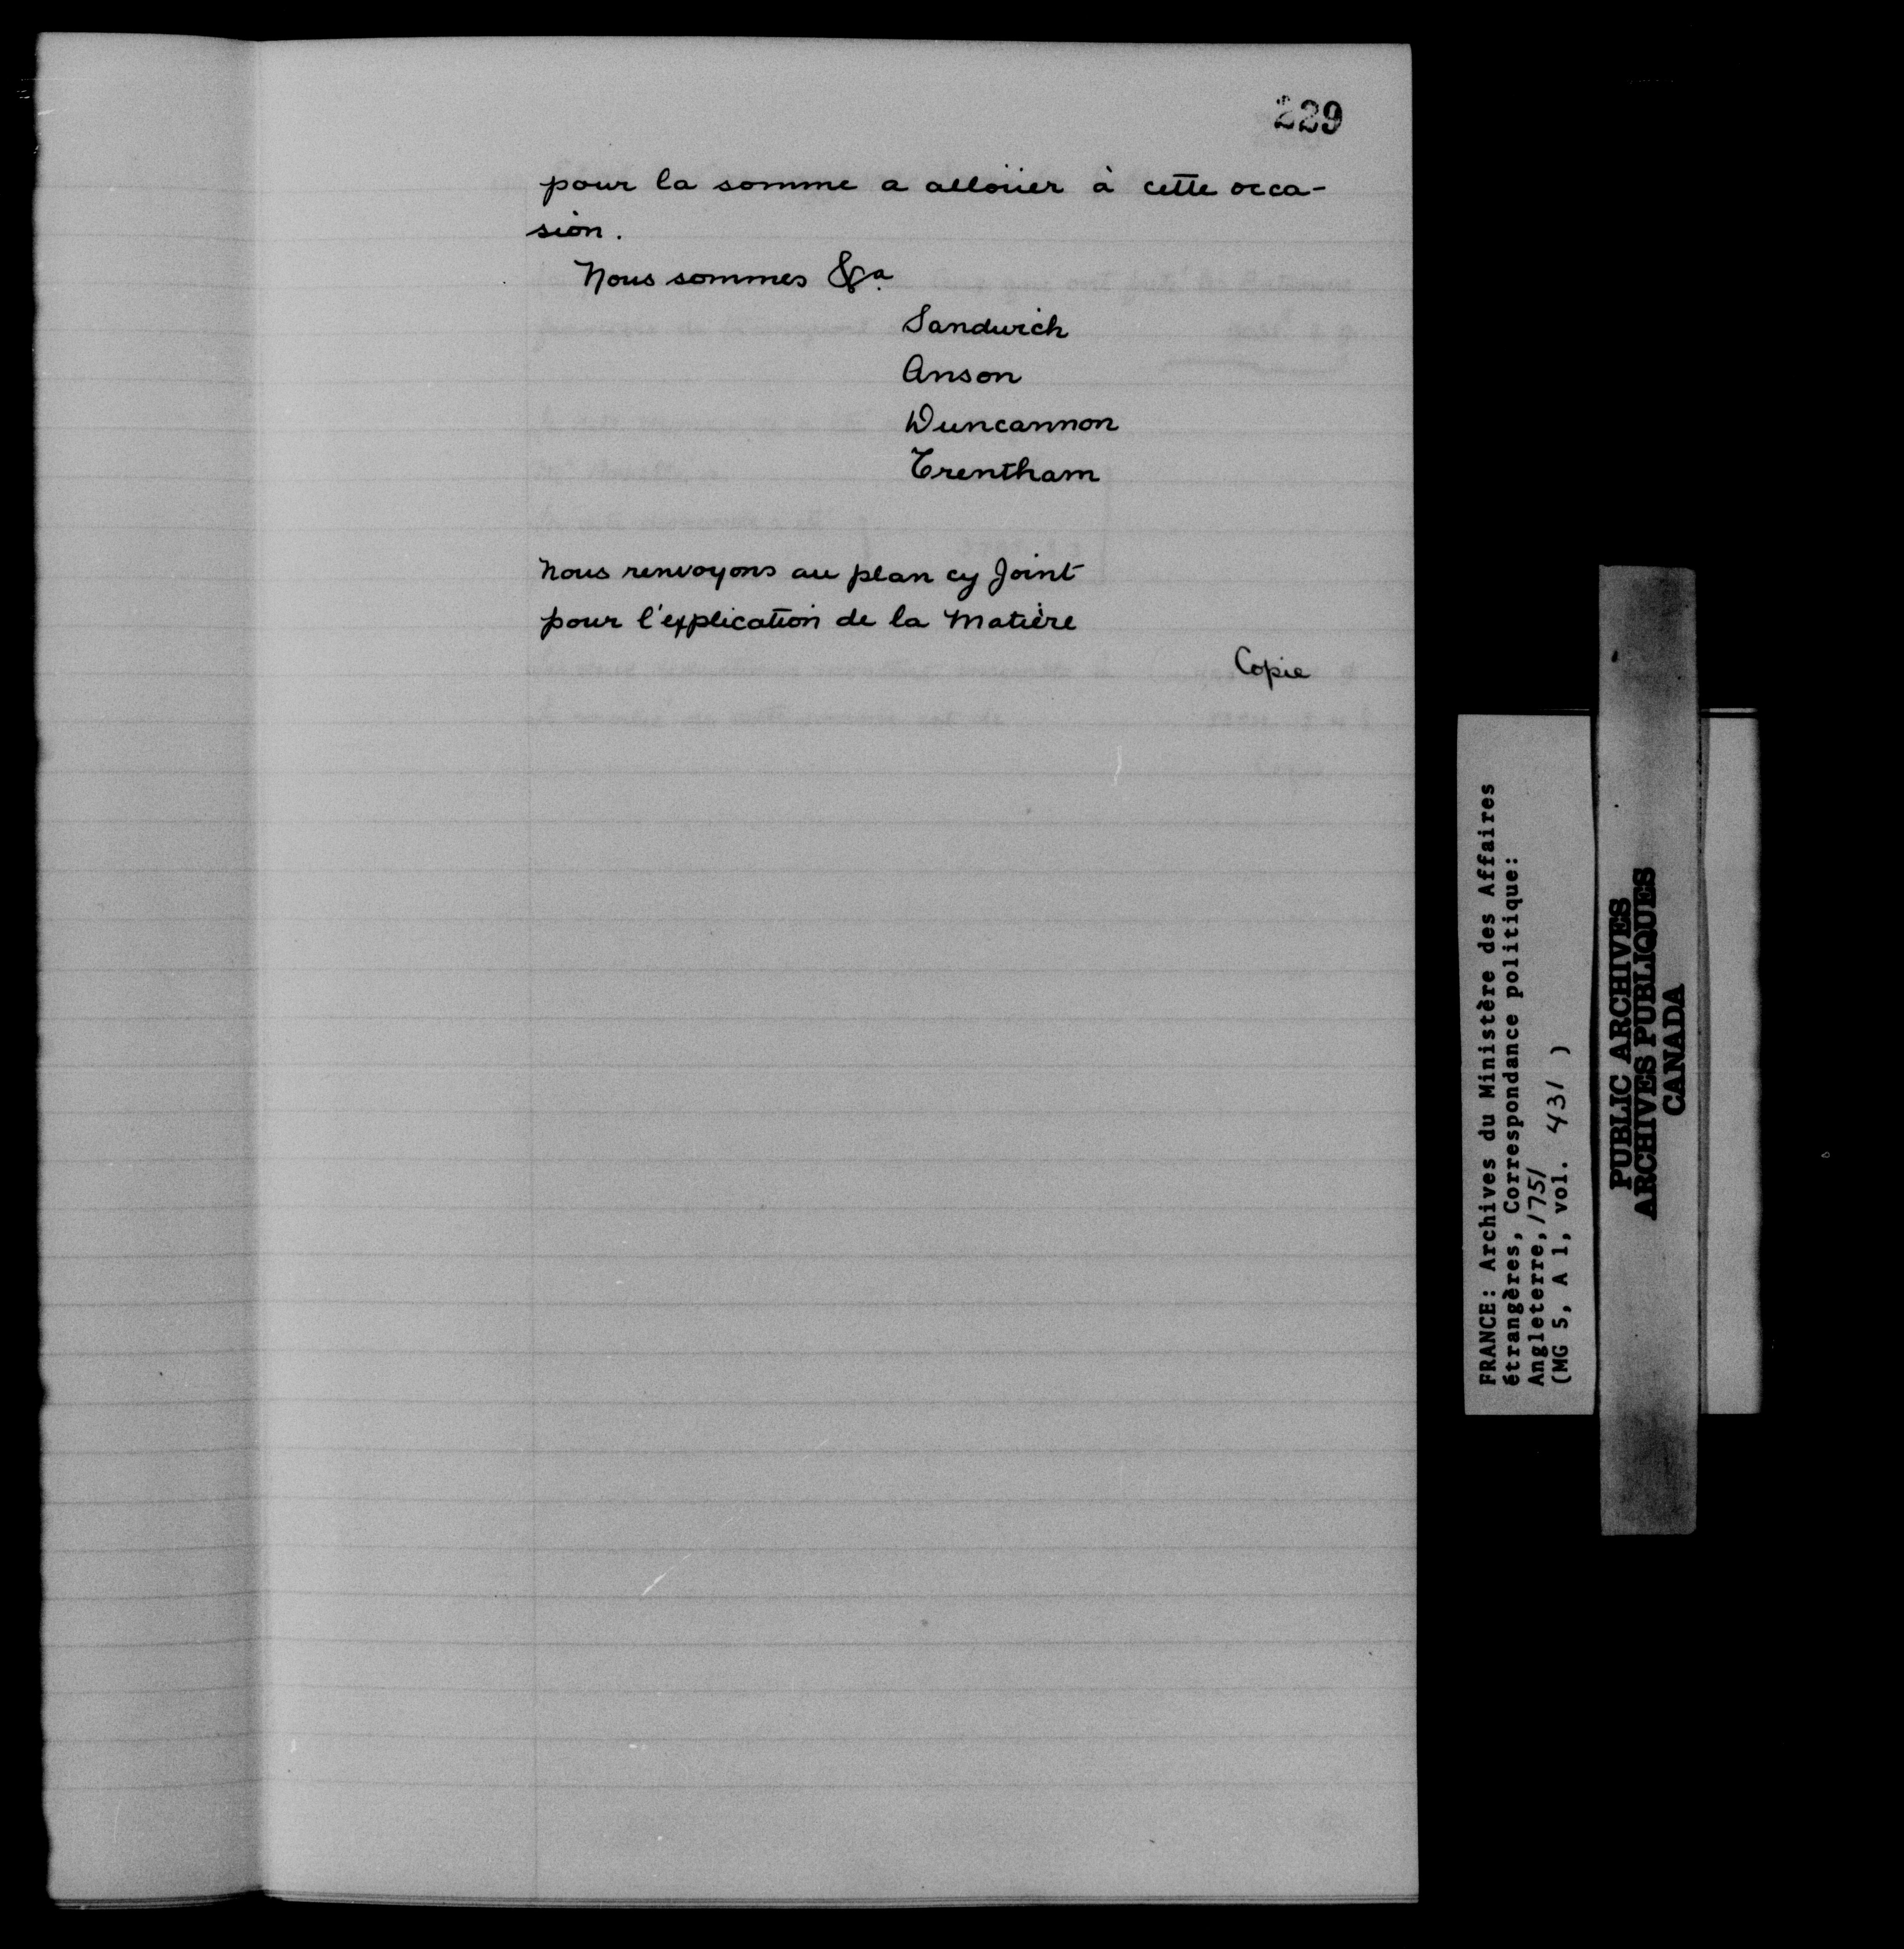 229
pour la somme a alloüer à cette occa-
sion.
Nous sommes &a
Sandwich
Anson
Duncannon
Trentham
Nous renvoyons au plan cy Joint
pour l'explication de la Matière
Copie
FRANCE: Archives du Ministère des Affaires
étrangères, Correspondance politique:
Angleterre, 1751
(MG 5, A 1, vol. 431 )
PUBLIC ARCHIVES
ARCHIVES PUBLIQUES
CANADA